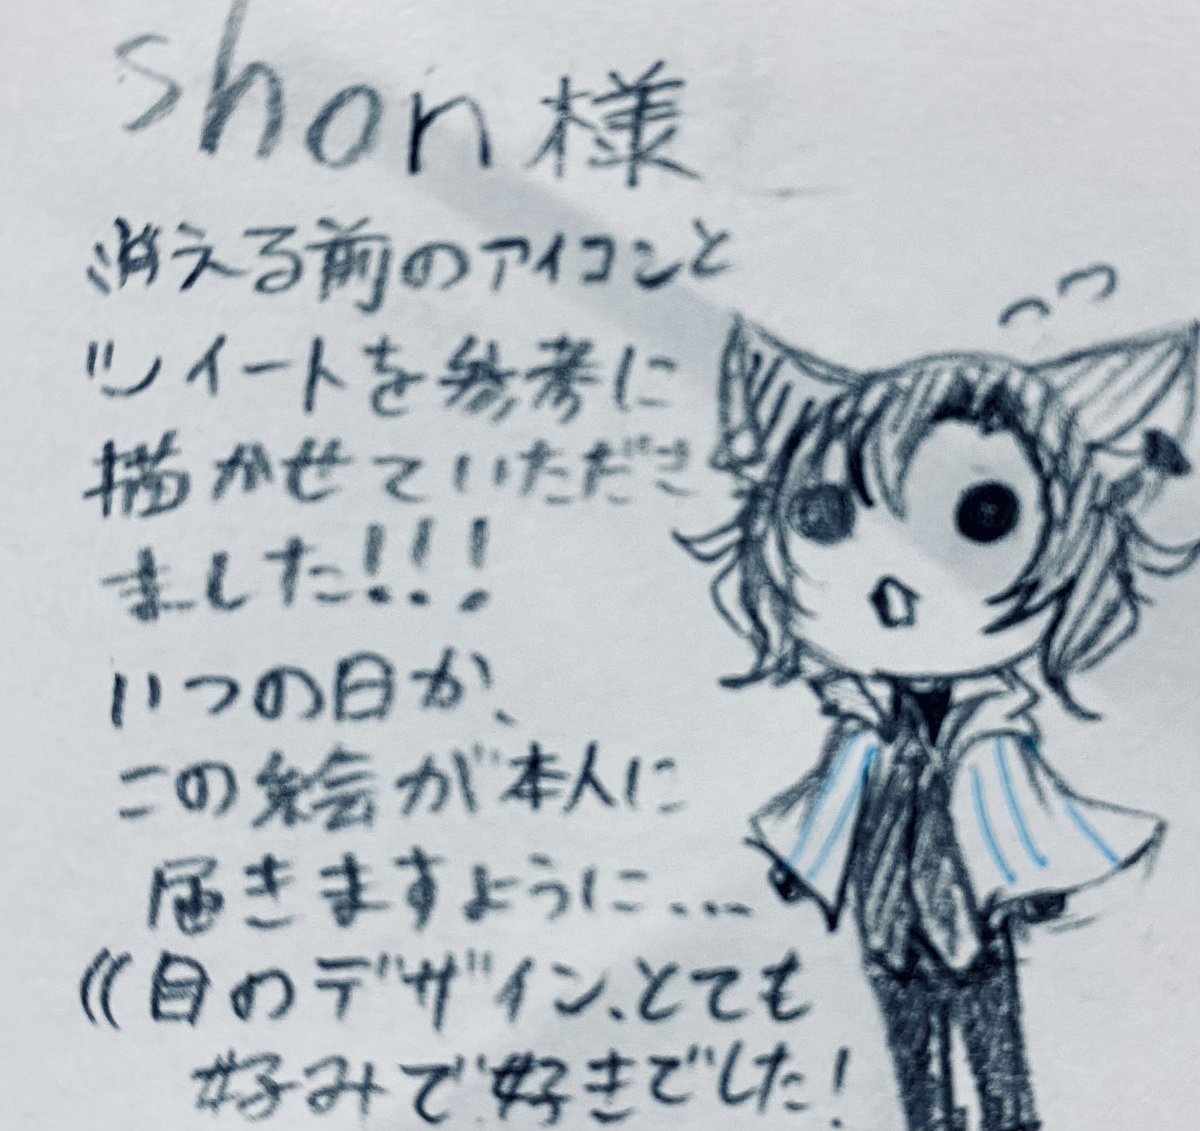 shon様
消える前のアイコンと
ツイートを参考に
描かせていただき
ました!!!
いつの日か、
この絵が本人に
届きますように...
((目のデザイン、とても
好みで好きでした!